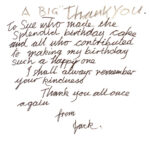 A BIG THANK YOU.
To Sue who made the
splendid birthday cake
and all who contributed
to making my birthday
such a happy one
I shall always remember
your kindness
Thank you all once
again
from
Jack.